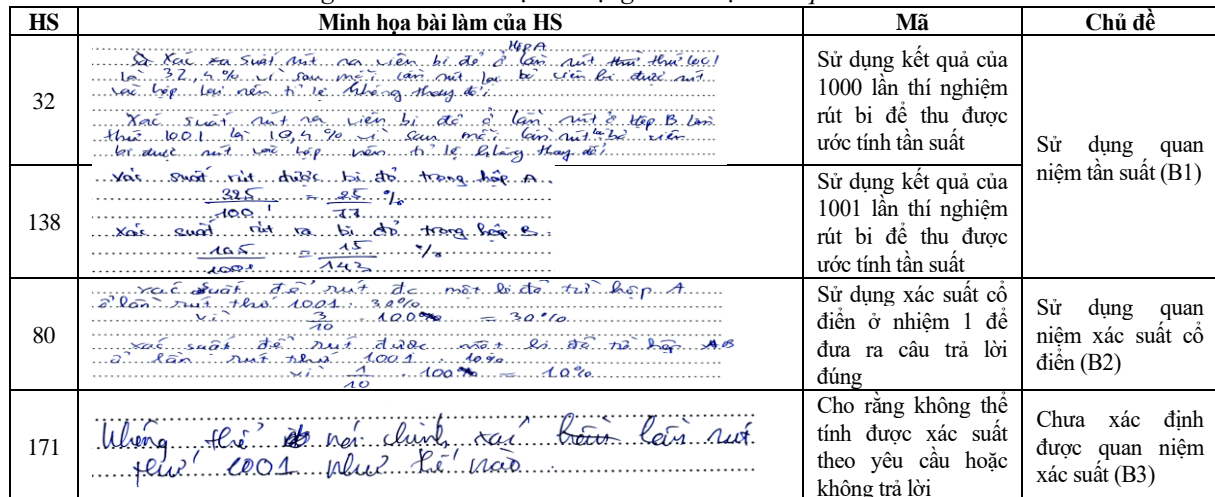 HS Minh họa bài làm của HS Mã Chủ đề
32
Hộp A
Xác suất rút ra viên bi đỏ ở lần rút thứ 1001
là 32,4% vì sau mỗi lần rút lại bỏ viên bi được rút
vào hộp lại nên tỉ lệ không thay đổi
Xác suất rút ra viên bi đỏ ở lần rút ở hộp B lần
thứ 1001 là 10,4% vì sau mỗi lần rút lại bỏ viên
bi được rút vào hộp nên tỉ lệ không thay đổi
Sử dụng kết quả của
1000 lần thí nghiệm
rút bi để thu được
ước tính tần suất
Sử dụng quan
niệm tần suất (B1)
138
Xác suất rút được bi đỏ trong hộp A
325 / 1001 = 25 / 77 %
Xác suất rút ra bi đỏ trong hộp B
105 / 1001 = 15 / 143 %
Sử dụng kết quả của
1001 lần thí nghiệm
rút bi để thu được
ước tính tần suất
80
xác suất để rút đc một bi đỏ từ hộp A
ở lần rút thứ 1001: 30%
vì 3 / 10 . 100% = 30%
xác suất để rút được một bi đỏ từ hộp B
ở lần rút thứ 1001: 10%
vì 1 / 10 . 100% = 10%
Sử dụng xác suất cổ
điển ở nhiệm 1 để
đưa ra câu trả lời
đúng
Sử dụng quan
niệm xác suất cổ
điển (B2)
171
Không thể nói chính xác lần rút
thứ 1001 như thế nào
Cho rằng không thể
tính được xác suất
theo yêu cầu hoặc
không trả lời
Chưa xác định
được quan niệm
xác suất (B3)